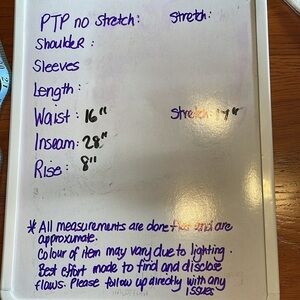 PTP no stretch: Stretch:
Shoulder:
Sleeves
Length:
Waist: 16" Stretch: 17"
Inseam: 28"
Rise: 8"
* All measurements are done flat and are
approximate.
Colour of item may vary due to lighting.
Best effort made to find and disclose
flaws. Please follow up directly with any
issues